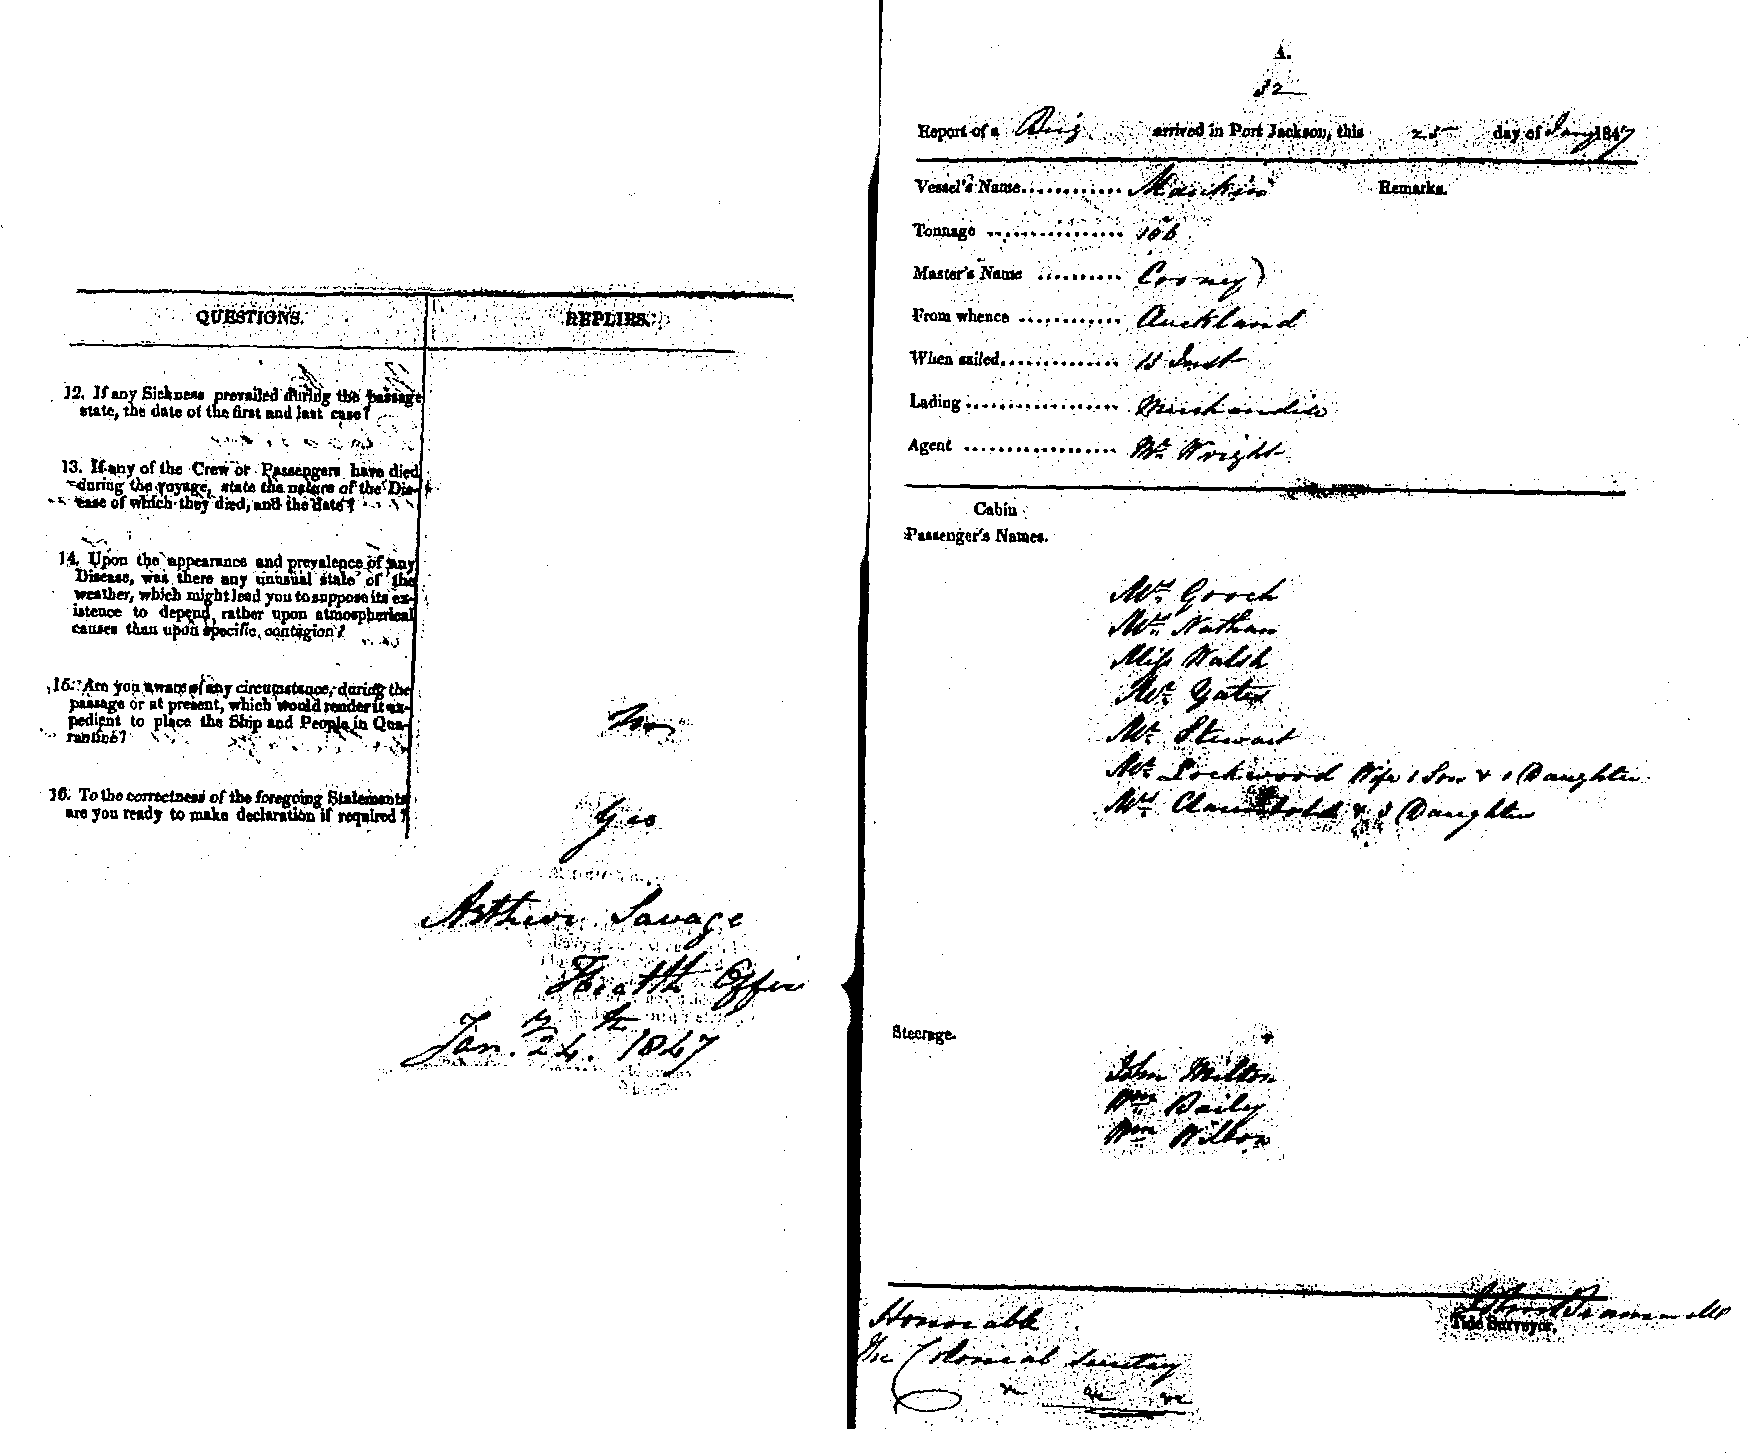 QUESTIONS.
REPLIES.
12. If any Sickness prevailed during the passage
state, the date of the first and last case?
13. If any of the Crew or Passengers have died
during the voyage, state the nature of the Dis-
ease of which they died, and the date?
14. Upon the appearance and prevalence of any
Disease, was there any unusual state of the
weather, which might lead you to suppose its ex-
istence to depend, rather upon atmospherical
causes than upon specific contagion?
15. Are you aware of any circumstance, during the
passage or at present, which would render it ex-
pedient to place the Ship and People in Qua-
rantine?
No
16. To the correctness of the foregoing Statements
are you ready to make declaration if required?
Yes
Arthur Savage
Health Officer
Jan. 24th. 1847
A.
32
Report of a Brig arrived in Port Jackson, this 25 day of Jany 1847
Vessel's Name Maukin
Remarks.
Tonnage 106
Master's Name Cooney
From whence Auckland
When sailed 13 Inst
Lading Merchandise
Agent Mr Wright
Cabin
Passenger's Names.
Mr Gooch
Nathan
Miss Walsh
Mr Yates
Mr Stewart
Mr Lockwood Wife 1 Son & 1 Daughter
Daughter
Steerage.
John Milton
Wm Baily
Wm Wilson
Tide Surveyor.
Honorable
The Colonial Secretary
&c &c &c